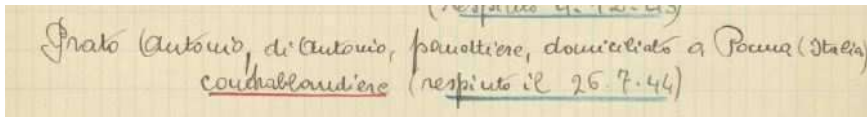 (respinto il 4.12.43)
Prato Antonio, di Antonio, panettiere, domiciliato a Parma (Italia)
contrabbandiere (respinto il 26.7.44)